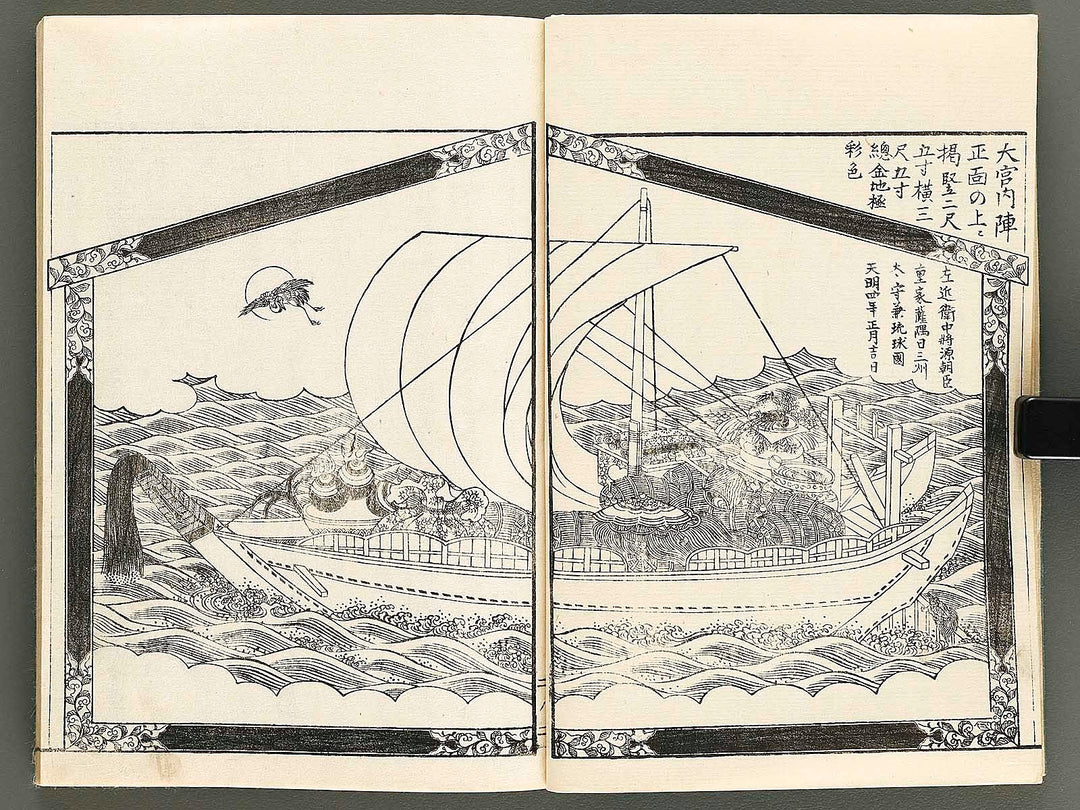 大宮内陣
正面の上ニ
掲竪二尺
五寸横三
尺五寸
總金地極
彩色
左近衛中將源朝臣
重家薩隅日三州
太守兼琉球國
天明四年正月吉日